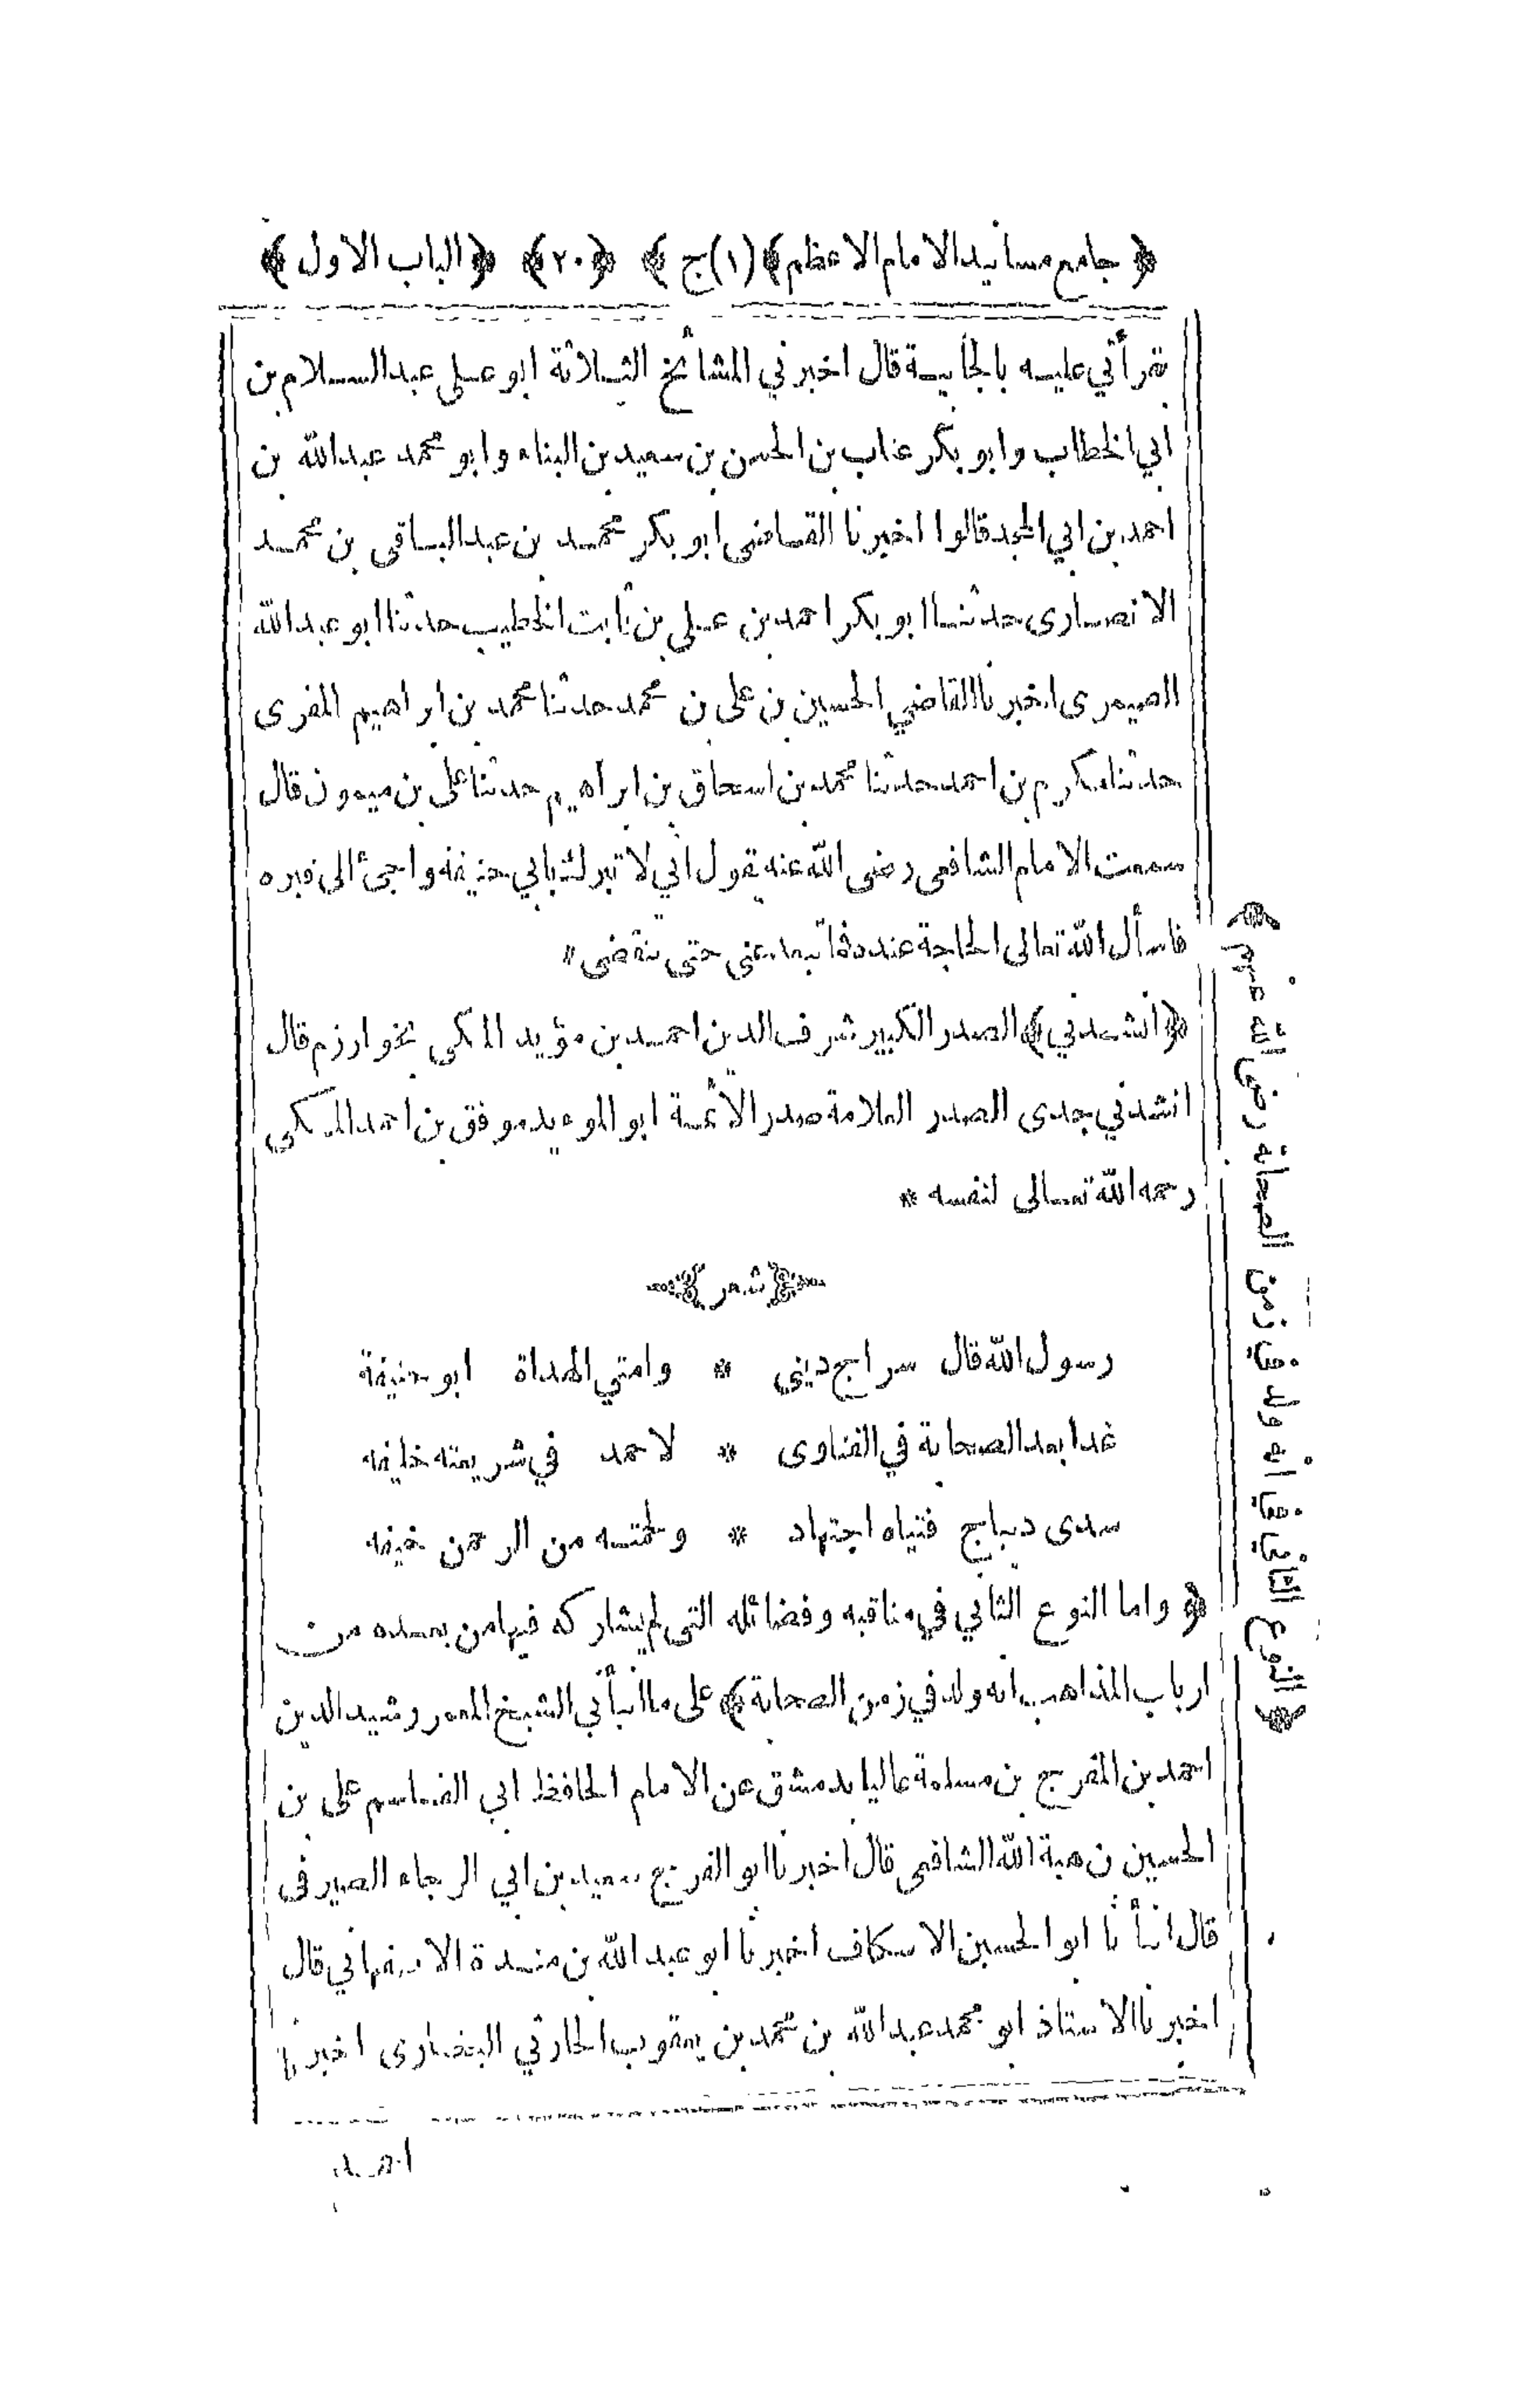 ﴿ جامع مسانيد الامام الاعظم ﴾ (١) ج ﴾ ﴿ ٢٠ ﴾ ﴿ الباب الاول ﴾
بقرأتي عليه بالجانبية قال اخبرني المشائخ الثلاثة ابو على عبد السلام بن
ابي الخطاب وابو بكر عتاب بن الحسن بن سعيد بن البناء وابو محمد عبد الله بن
احمد بن ابي المجد قالوا اخبرنا القاضى ابو بكر محمد بن عبد الباقى بن محمد
الانصارى حدثنا ابو بكر احمد بن على بن ثابت الخطيب حدثنا ابو عبد الله
الصيمرى اخبرنا القاضي الحسين بن على بن محمد حدثنا محمد بن ابراهيم المقرى
حدثنا مكرم بن احمد حدثنا محمد بن اسحاق بن ابراهيم حدثنا على بن ميمون قال
سمعت الامام الشافعى رضى الله عنه يقول انى لا تبرك بابي حنيفه واجئ الى قبره
فاسأل الله تعالى الحاجة عنده فما تبعد عنى حتى تنقضى *
﴿ انشدني ﴾ الصدر الكبير شرف الدين احمد بن مؤيد المكى بخوارزم قال
انشدني جدى الصدر العلامة صدر الأئمة ابو المؤيد موفق بن احمد المكى
رحمه الله تعالى لنفسه *
﴿ شعر ﴾
رسول الله قال سراج دينى * وامتي الهداة ابو حنيفة
غدا بعد الصحابة في الفتاوى * لاحمد في شريعته خليفه
سدى ديباج فتياه اجتهاد * ولحمته من الرحمن خيفه
﴿ واما النوع الثاني في مناقبه وفضائله التى لم يشاركه فيها من بعده من
ارباب المذاهب انه ولد في زمن الصحابة ﴾ على ما انبأني الشيخ المعمر رشيد الدين
احمد بن المفرج بن مسلمة عاليا بدمشق عن الامام الحافظ ابي القاسم على بن
الحسين بن هبة الله الشافعى قال اخبرنا ابو الفرج سعيد بن ابي الرجاء الصيرفى
قال انبأنا ابو الحسين الاسكاف اخبرنا ابو عبد الله بن مندة الاصفهاني قال
اخبرنا الاستاذ ابو محمد عبد الله بن محمد بن يعقوب الحارثي البخارى اخبرنا
احمد
﴿ النوع الثاني في انه ولد في زمن الصحابة رضى الله عنهم ﴾